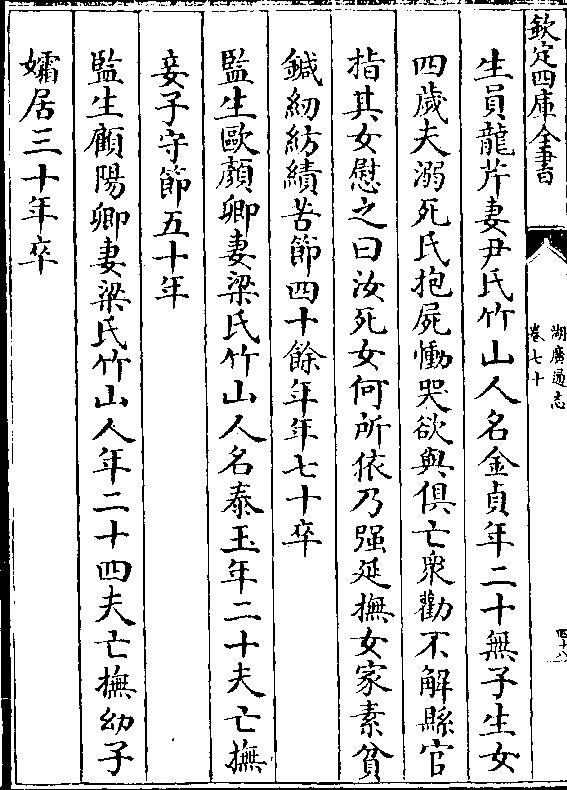 欽定四庫全書
湖廣通志
卷七十
四十八
生員龍芹妻尹氏竹山人名金貞年二十無子生女
四歲夫溺死氏抱屍慟哭欲與俱亡衆勸不解縣官
指其女慰之曰汝死女何所依乃强延撫女家素貧
鍼紉紡績苦節四十餘年年七十卒
監生歐顏卿妻梁氏竹山人名泰玉年二十夫亡撫
妾子守節五十年
監生顧陽卿妻梁氏竹山人年二十四夫亡撫幼子
孀居三十年卒